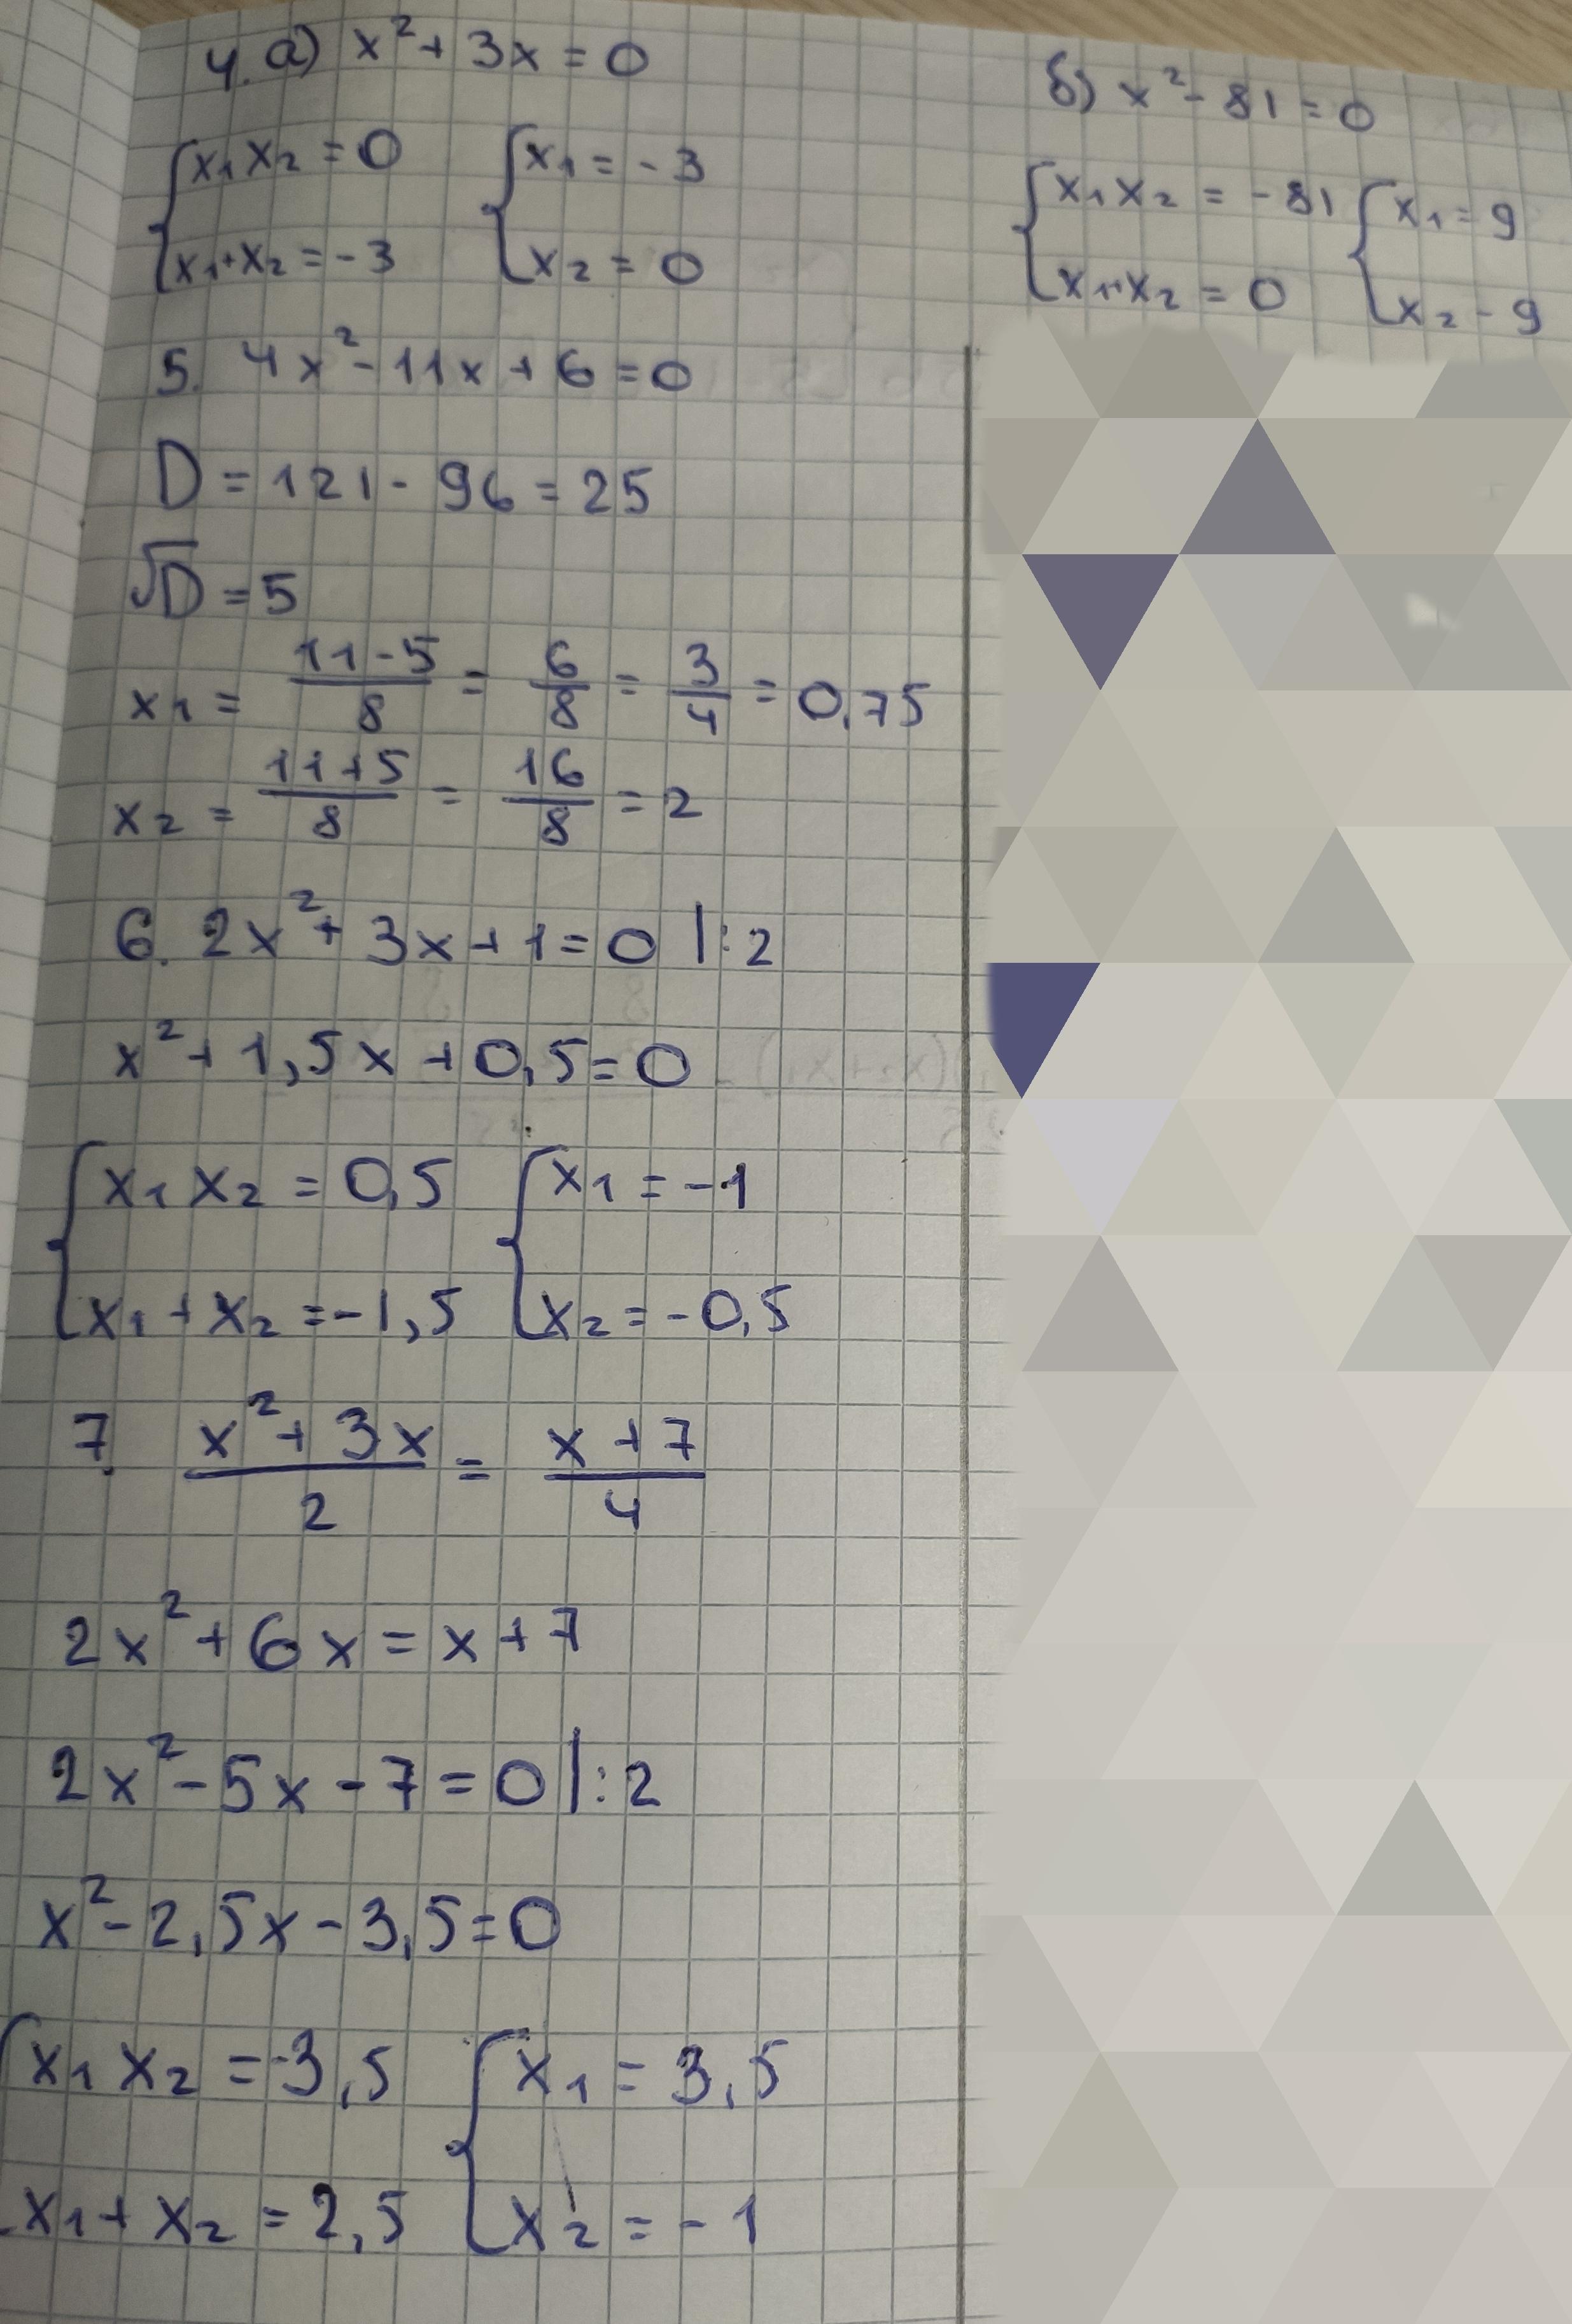 4. а) x² + 3x = 0
{x₁x₂ = 0 {x₁ = -3
x₁+x₂ = -3 x₂ = 0
б) x² - 81 = 0
{x₁x₂ = -81 {x₁ = 9
x₁+x₂ = 0 x₂ - 9
5. 4x² - 11x + 6 = 0
D = 121 - 96 = 25
√D = 5
x₁ = (11-5)/8 = 6/8 = 3/4 = 0,75
x₂ = (11+5)/8 = 16/8 = 2
6. 2x² + 3x + 1 = 0 |:2
x² + 1,5x + 0,5 = 0
{x₁x₂ = 0,5 {x₁ = -1
x₁ + x₂ = -1,5 x₂ = -0,5
7. (x² + 3x)/2 = (x + 7)/4
2x² + 6x = x + 7
2x² - 5x - 7 = 0 |:2
x² - 2,5x - 3,5 = 0
{x₁x₂ = -3,5 {x₁ = 3,5
x₁ + x₂ = 2,5 x₂ = -1